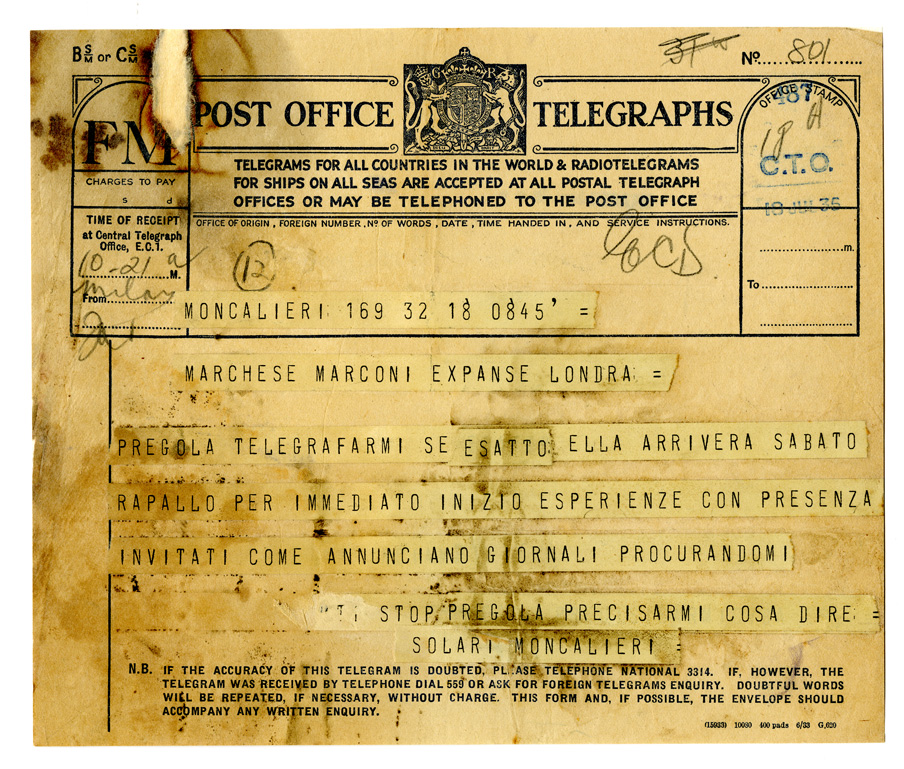 BS/M or CS/M
37
No. 801
POST OFFICE TELEGRAPHS
G R
OFFICE STAMP
487
18 A
C.T.O.
18 JUL 35
FM
CHARGES TO PAY
s d
TELEGRAMS FOR ALL COUNTRIES IN THE WORLD & RADIOTELEGRAMS
FOR SHIPS ON ALL SEAS ARE ACCEPTED AT ALL POSTAL TELEGRAPH
OFFICES OR MAY BE TELEPHONED TO THE POST OFFICE
TIME OF RECEIPT
at Central Telegraph
Office, E.C.1.
10-21 a M.
From Milan
OFFICE OF ORIGIN, FOREIGN NUMBER, No OF WORDS, DATE, TIME HANDED IN, AND SERVICE INSTRUCTIONS.
12
m.
To
MONCALIERI 169 32 18 0845' =
MARCHESE MARCONI EXPANSE LONDRA =
PREGOLA TELEGRAFARMI SE ESATTO ELLA ARRIVERA SABATO
RAPALLO PER IMMEDIATO INIZIO ESPERIENZE CON PRESENZA
INVITATI COME ANNUNCIANO GIORNALI PROCURANDOMI
TI STOP PREGOLA PRECISARMI COSA DIRE =
SOLARI MONCALIERI =
N.B. IF THE ACCURACY OF THIS TELEGRAM IS DOUBTED, PLEASE TELEPHONE NATIONAL 3314. IF, HOWEVER, THE
TELEGRAM WAS RECEIVED BY TELEPHONE DIAL 559 OR ASK FOR FOREIGN TELEGRAMS ENQUIRY. DOUBTFUL WORDS
WILL BE REPEATED, IF NECESSARY, WITHOUT CHARGE. THIS FORM AND, IF POSSIBLE, THE ENVELOPE SHOULD
ACCOMPANY ANY WRITTEN ENQUIRY.
(15933) 10080 400 pads 6/33 G,620